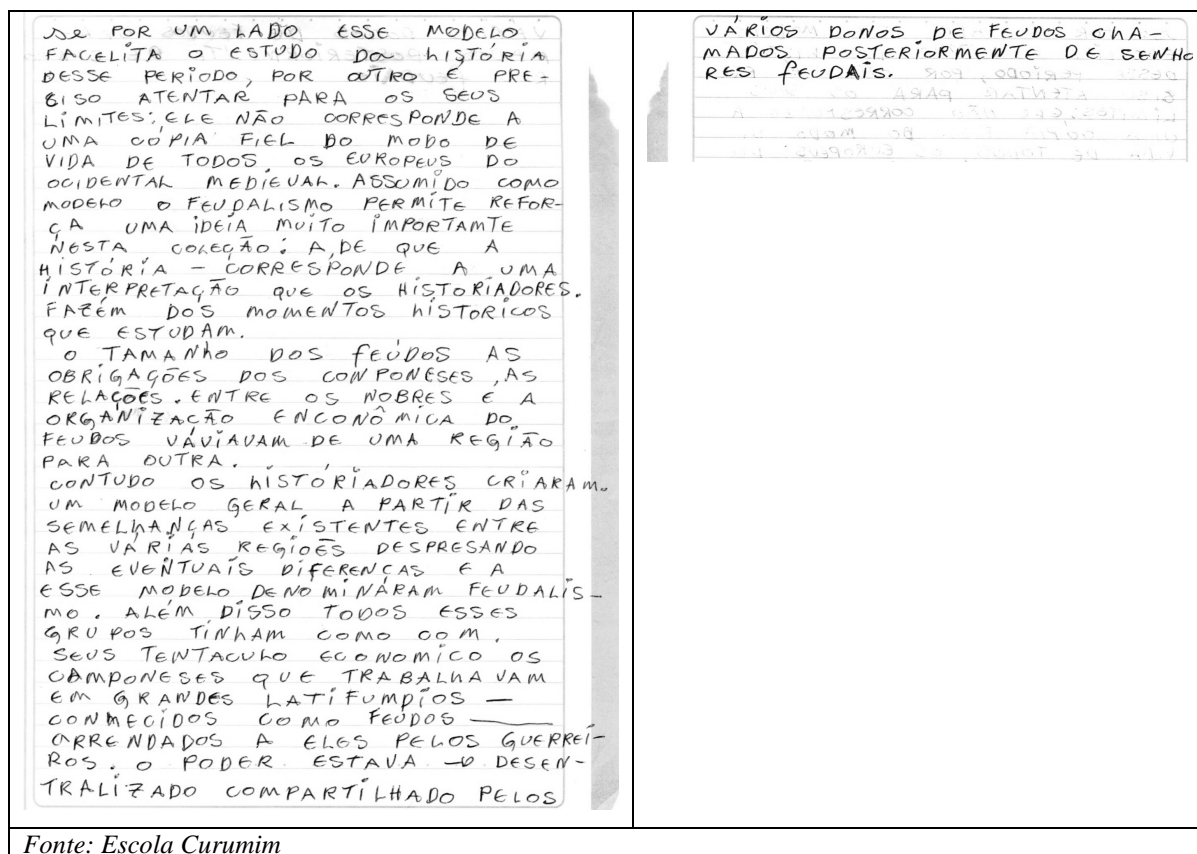 se POR UM LADO ESSE MODELO
FACELITA O ESTUDO DA hISTÓRIA
DESSE PERÍODO, POR OUTRO É PRE-
CISO ATENTAR PARA OS SEUS
LIMITES: ELE NÃO CORRESPONDE A
UMA CÓPIA FIEL DO MODO DE
VIDA DE TODOS OS EUROPEUS DO
OCIDENTAL MEDIEVAL. ASSUMIDO COMO
MODELO O FEUDALISMO PERMITE REFOR-
ÇA UMA IDEIA MUITO IMPORTAMTE
NESTA COLEÇÃO: A DE QUE A
HISTÓRIA - CORRESPONDE A UMA
INTERPRETAÇÃO QUE OS HISTORIADORES.
FAZÉM DOS MOMENTOS hISTORICOS
QUE ESTUDAM.
O TAMANho DOS fEÚDOS AS
OBRIGAÇÕES DOS CONPONESES, AS
RELAÇÕES. ENTRE OS NOBRES E A
ORGANIZAÇÃO ENCONÔMICA DO
FEUDOS VÁVIAVAM DE UMA REGIÃO
PARA OUTRA.
CONTUDO OS hISTÓRIADORES CRIARAM.
UM MODELO GERAL A PARTIR DAS
SEMELhANÇAS EXISTENTES ENTRE
AS VÁRIAS REGIOẼS DESPRESANDO
AS EVENTUAIS DIFERENÇAS E A
ESSE MODELO DENOMINÁRAM FEUDALIS-
MO. ALÉM DISSO TODOS ESSES
GRUPOS TINhAM COMO COM.
SEUS TENTACULO ECONOMICO OS
CAMPONESES QUE TRABALhAVAM
EM GRANDES LATIFUMDIOS —
CONMECIDOS COMO FEÚDOS ——
ARRENDADOS A ELES PELOS GUERREI-
ROS. O PODER ESTAVA DESEN-
TRALIZADO COMPARTILHADO PELOS
VÁRIOS DONOS DE FEUDOS ChA-
MADOS POSTERIORMENTE DE SENHO
RES fEUDAIS.
Fonte: Escola Curumim